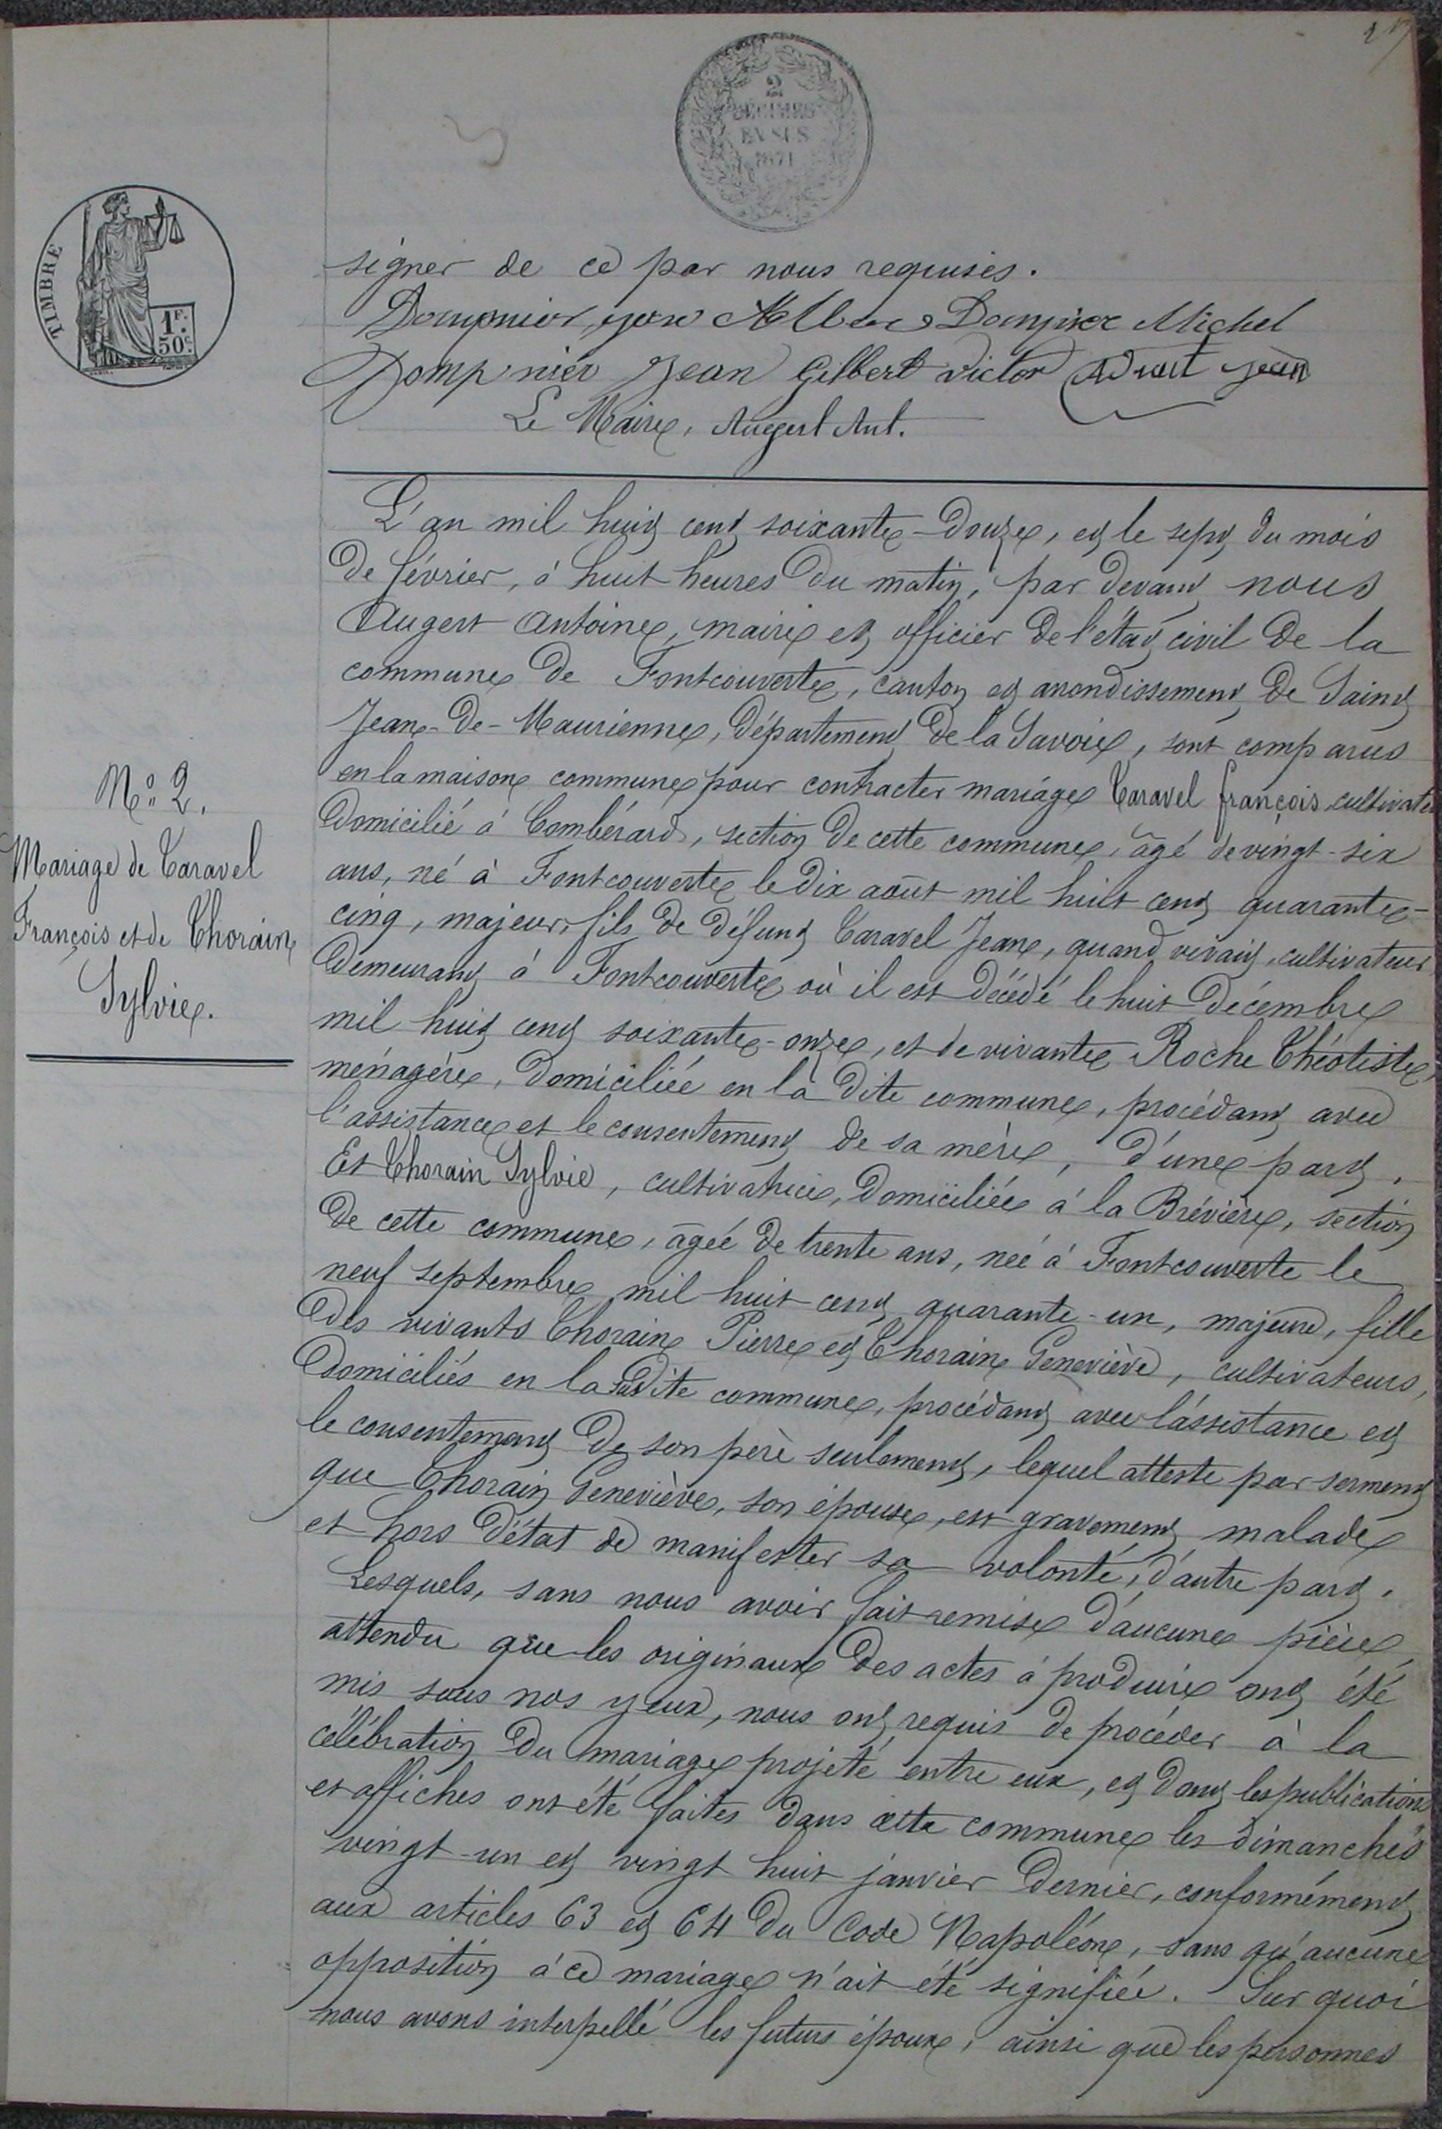 2
DÉCIMES
EN SUS
1871
TIMBRE
1F.
50c.
signer de ce par nous requises.
Michel
Dompnier Jean Gilbert Victor Jean
Le Maire, Augert Ant.
L'an mil huit cent soixante-douze, et le sept du mois
de février, à huit heures du matin, par devant nous
Augert Antoine, maire et officier de l'état civil de la
commune de Fontcouverte, canton et arrondissement de Saint
Jean-de-Maurienne, département de la Savoie, sont comparus
en la maison commune pour contracter mariage Taravel françois, cultivateur
domicilié à Combérard, section de cette commune, âgé de vingt-six
ans, né à Fontcouverte le dix août mil huit cent quarante-
cinq, majeur, fils de défunt Taravel Jean, quand vivait, cultivateur
demeurant à Fontcouverte où il est décédé le huit décembre
mil huit cent soixante-onze, et de vivante Roche Théotiste,
ménagère, domiciliée en la dite commune, procédant avec
l'assistance et le consentement de sa mère, d'une part.
Et Thorain Sylvie, cultivatrice, domiciliée à la Brévière, section
de cette commune, âgée de trente ans, née à Fontcouverte le
neuf septembre mil huit cent quarante-un, majeure, fille
des vivants Thorain Pierre et Thorain Geneviève, cultivateurs,
domiciliés en la susdite commune, procédant avec l'assistance et
le consentement de son père seulement, lequel atteste par serment
que Thorain Geneviève, son épouse, est gravement malade
et hors d'état de manifester sa volonté, d'autre part.
Lesquels, sans nous avoir fait remise d'aucune pièce,
attendu que les originaux des actes à produire ont été
mis sous nos yeux, nous ont requis de procéder à la
célébration du mariage projeté entre eux, et dont les publications
et affiches ont été faites dans cette commune les dimanches
vingt-un et vingt huit janvier dernier, conformément
aux articles 63 et 64 du Code Napoléon, sans qu'aucune
opposition à ce mariage n'ait été signifiée. Sur quoi
nous avons interpellé les futurs époux, ainsi que les personnes
No 2.
Mariage de Taravel
François et de Thorain
Sylvie.